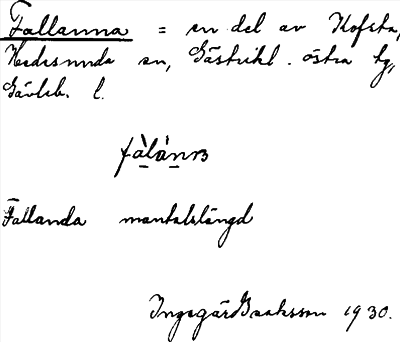 Fallanna = en del av Hofsta,
Hedesunda sn, Gästrikl. östra tg,
Gävleb. l.
Fallanda mantalslängd
Ingegärd Isaksson 1930.